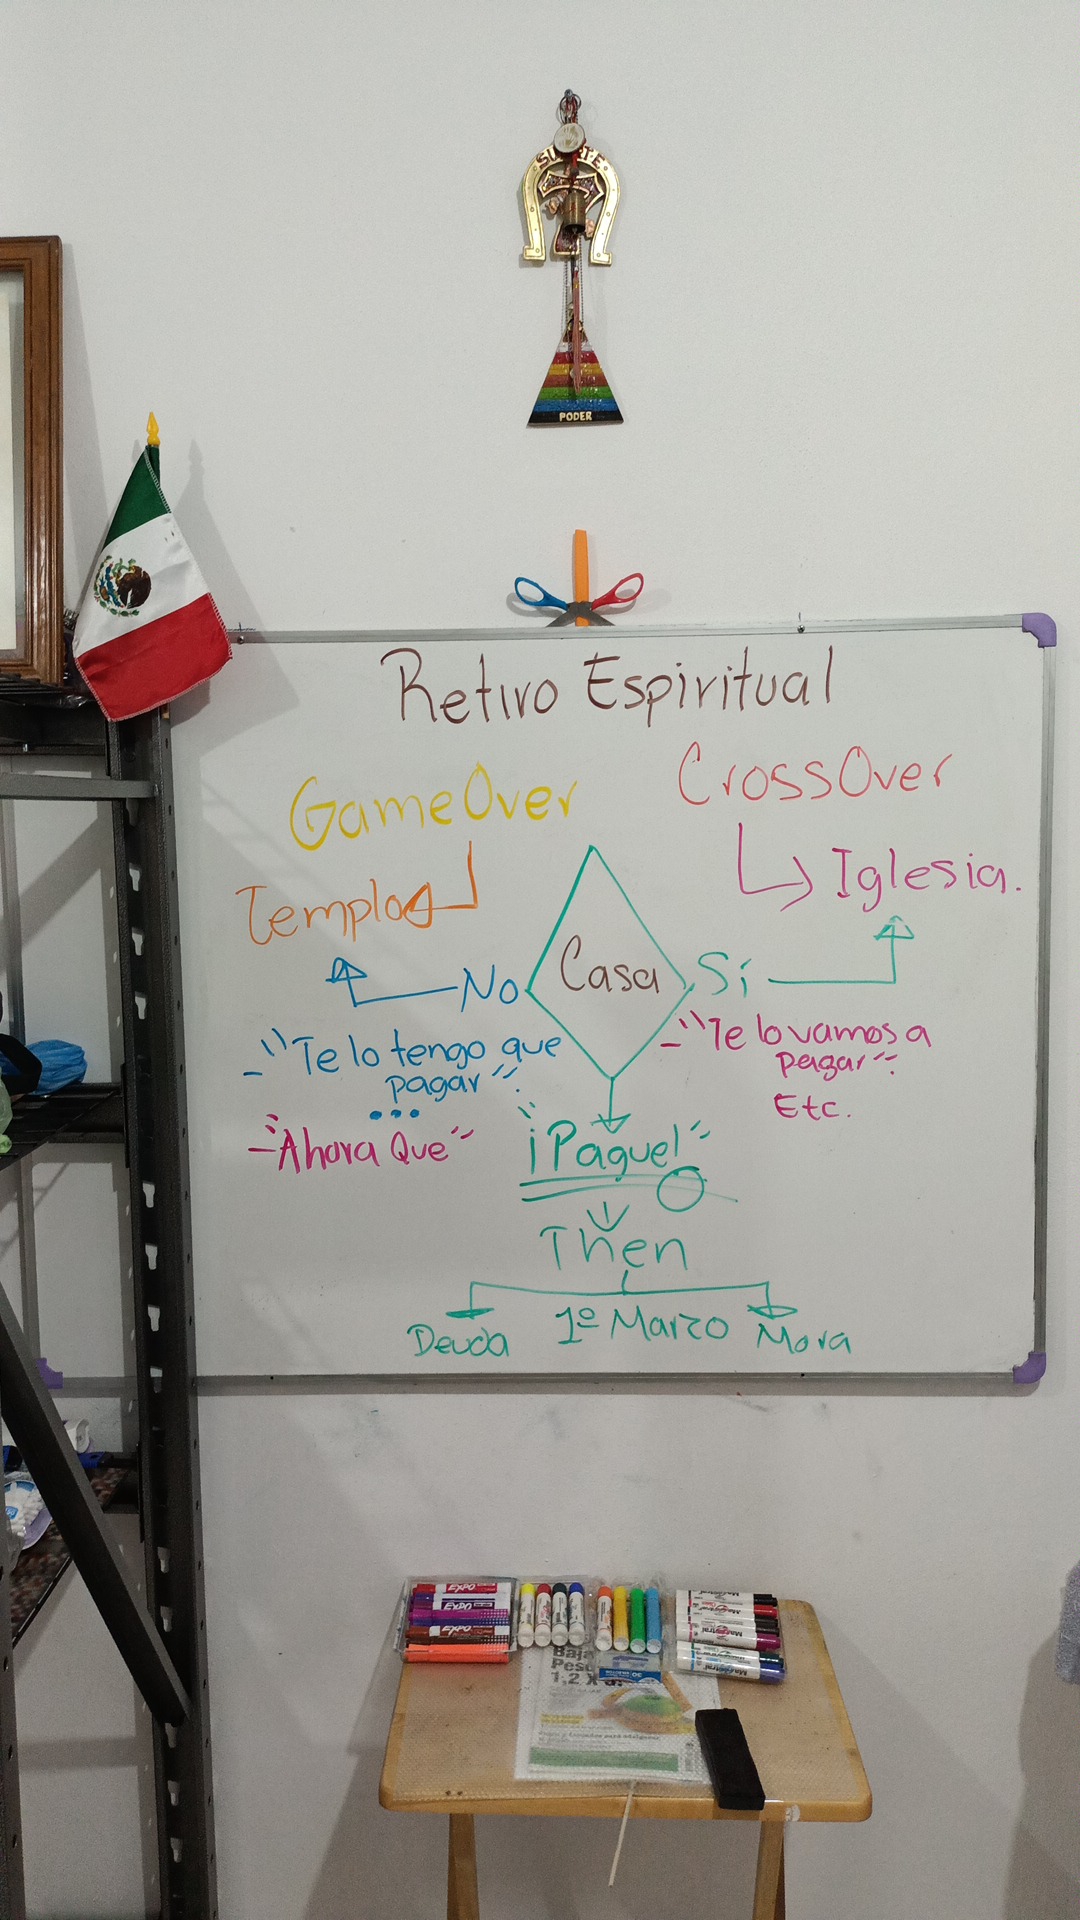 SUERTE
PODER
Retiro Espiritual
GameOver
CrossOver
Templo
Iglesia.
No
Casa
Sí
- "Te lo tengo que
pagar".
...
- "Te lo vamos a
pagar".
Etc.
- "Ahora Que"
"¡Pague!"
Then
Deuda
1º Marzo
Mora
EXPO
EXPO
EXPO
Magistral
Magistral
Magistral
Magistral
Baja
Peso